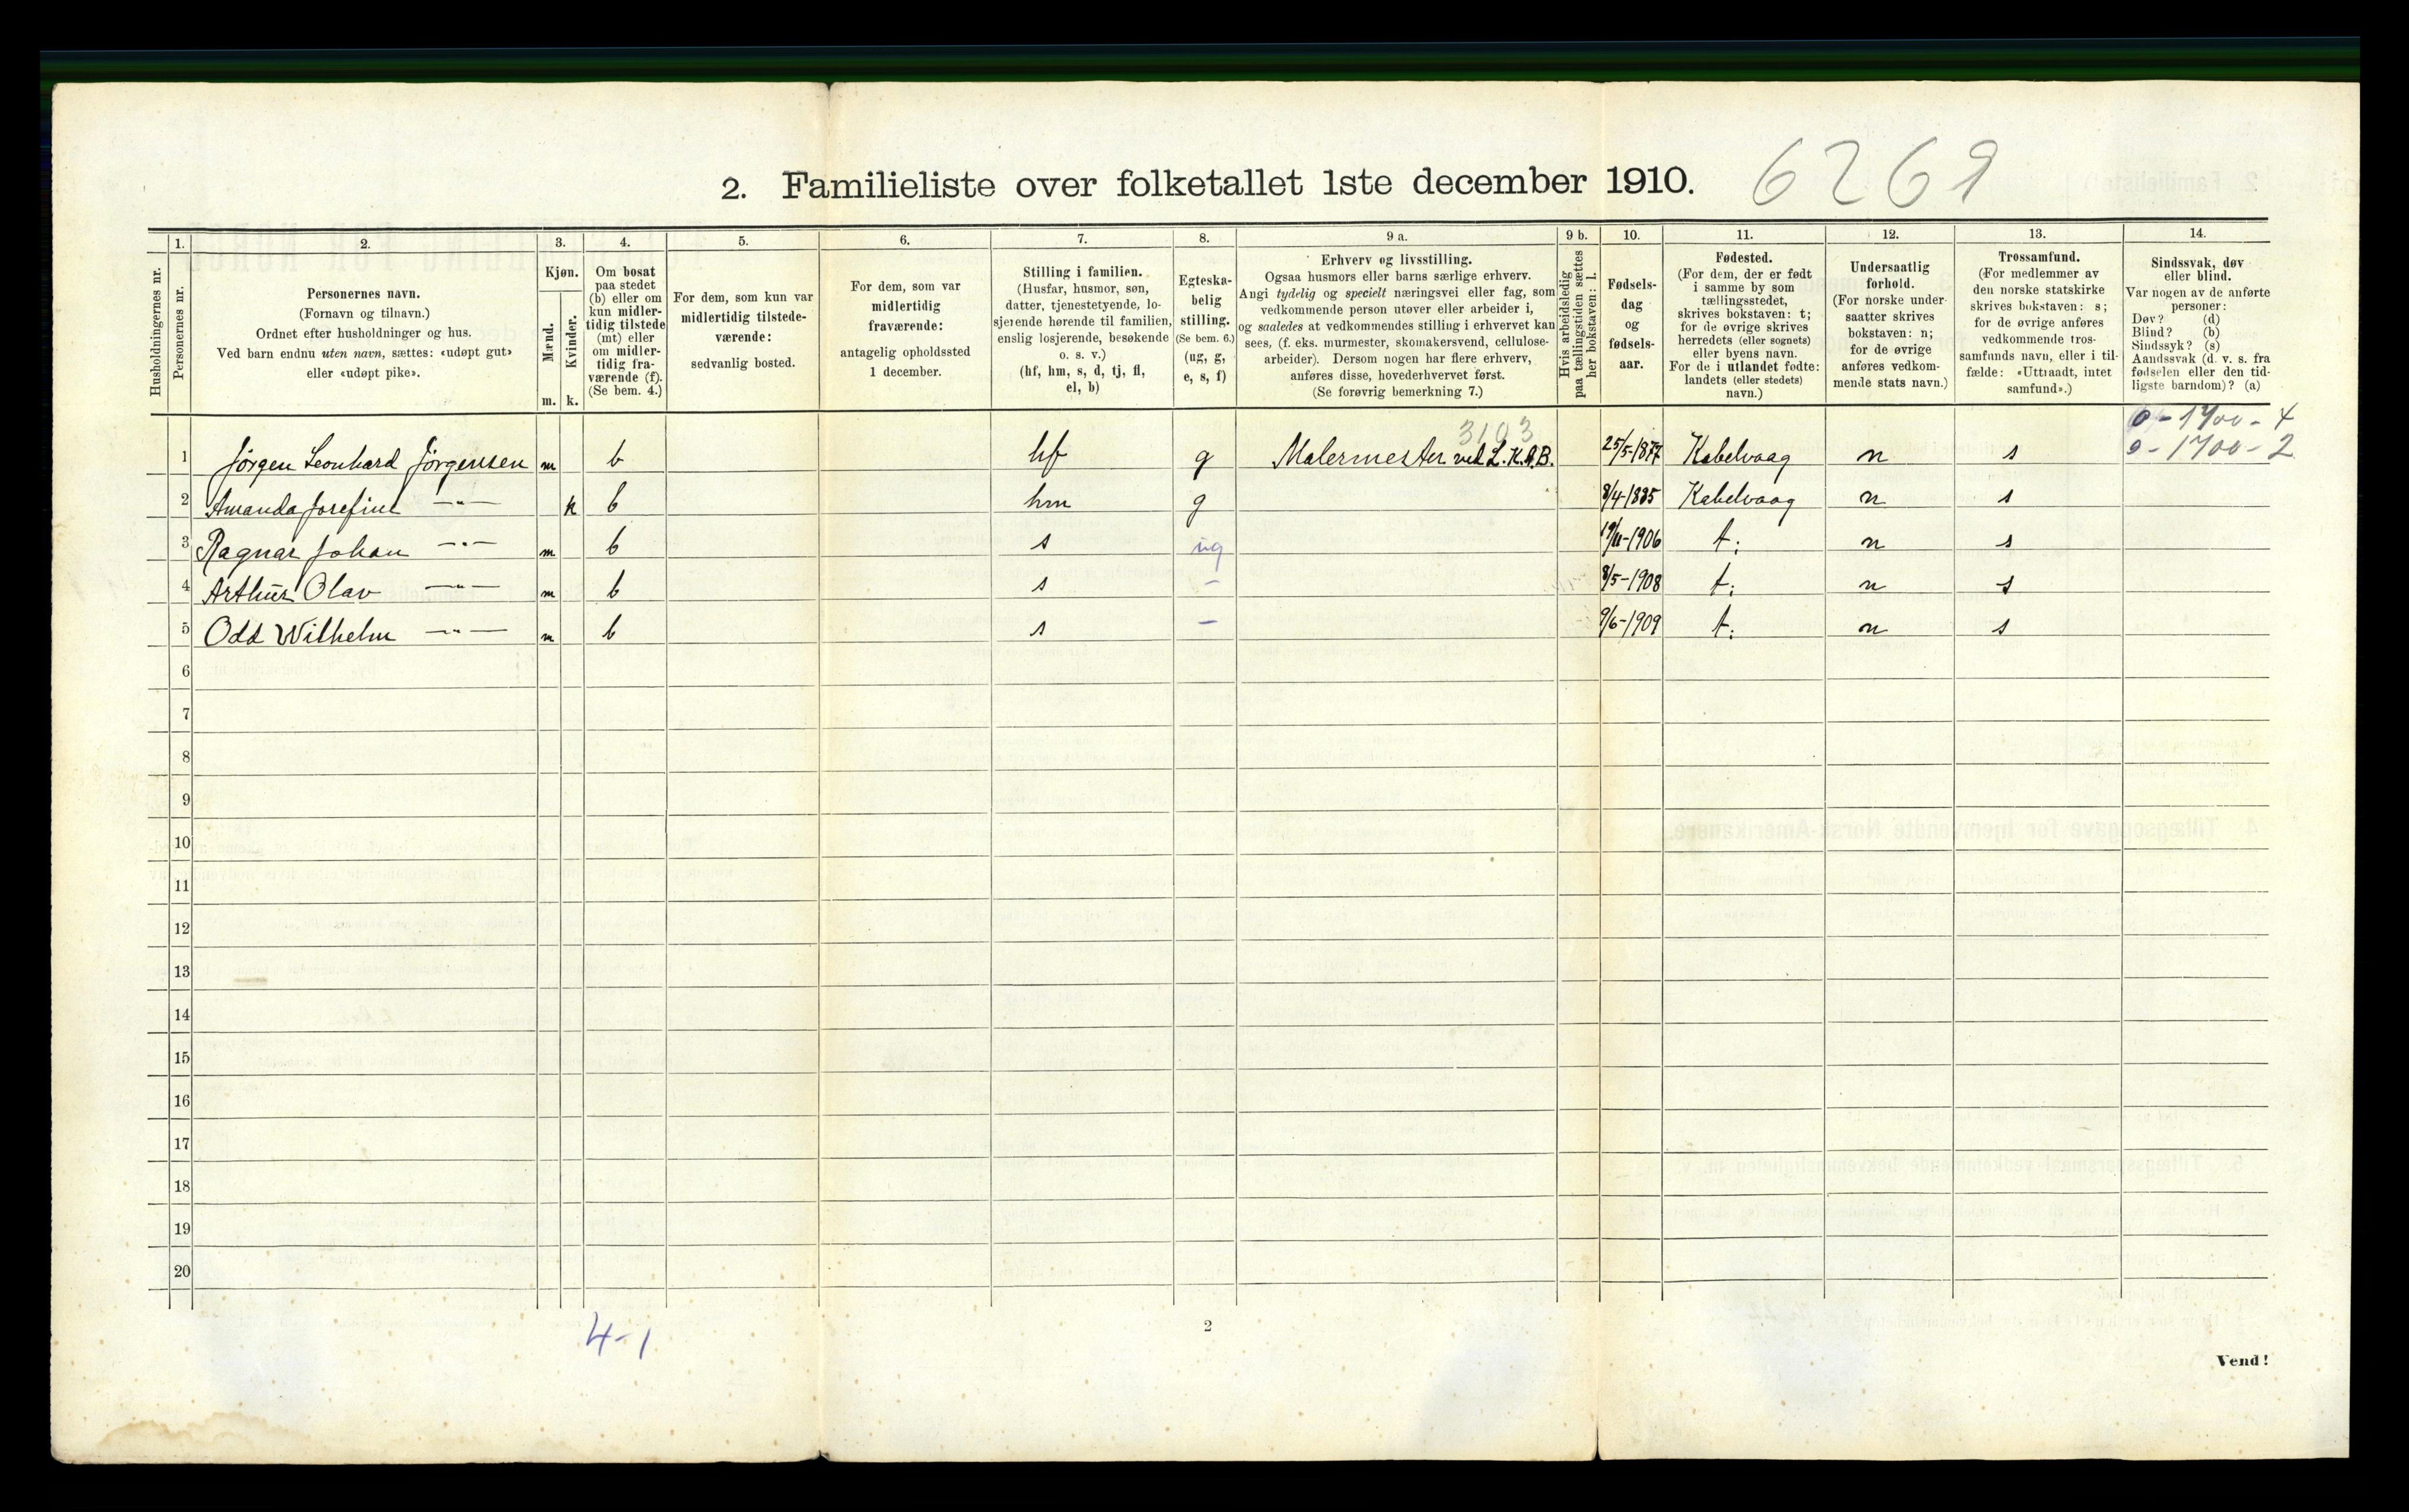 2. Familieliste over folketallet 1ste december 1910. 6269
Husholdningernes nr.
1.
Personernes nr.
2.
Personernes navn.
(Fornavn og tilnavn.)
Ordnet efter husholdninger og hus.
Ved barn endnu uten navn, sættes: «udøpt gut»
eller «udøpt pike».
3.
Kjøn.
Mænd.
Kvinder.
m. k.
4.
Om bosat
paa stedet
(b) eller om
kun midler-
tidig tilstede
(mt) eller
om midler-
tidig fra-
værende (f).
(Se bem. 4.)
5.
For dem, som kun var
midlertidig tilstede-
værende:
sedvanlig bosted.
6.
For dem, som var
midlertidig
fraværende:
antagelig opholdssted
1 december.
7.
Stilling i familien.
(Husfar, husmor, søn,
datter, tjenestetyende, lo-
sjerende hørende til familien,
enslig losjerende, besøkende
o. s. v.)
(hf, hm, s, d, tj, fl,
el, b)
8.
Egteska-
belig
stilling.
(Se bem. 6.)
(ug, g,
e, s, f)
9 a.
Erhverv og livsstilling.
Ogsaa husmors eller barns særlige erhverv.
Angi tydelig og specielt næringsvei eller fag, som
vedkommende person utøver eller arbeider i,
og saaledes at vedkommendes stilling i erhvervet kan
sees, (f. eks. murmester, skomakersvend, cellulose-
arbeider). Dersom nogen har flere erhverv,
anføres disse, hovederhvervet først.
(Se forøvrig bemerkning 7.)
9 b.
Hvis arbeidsledig
paa tællingstiden sættes
her bokstaven: l.
10.
Fødsels-
dag
og
fødsels-
aar.
11.
Fødested.
(For dem, der er født
i samme by som
tællingsstedet,
skrives bokstaven: t;
for de øvrige skrives
herredets (eller sognets)
eller byens navn.
For de i utlandet fødte:
landets (eller stedets)
navn.)
12.
Undersaatlig
forhold.
(For norske under-
saatter skrives
bokstaven: n;
for de øvrige
anføres vedkom-
mende stats navn.)
13.
Trossamfund.
(For medlemmer av
den norske statskirke
skrives bokstaven: s;
for de øvrige anføres
vedkommende tros-
samfunds navn, eller i til-
fælde: «Uttraadt, intet
samfund».)
14.
Sindssvak, døv
eller blind.
Var nogen av de anførte
personer:
Døv? (d)
Blind? (b)
Sindssyk? (s)
Aandssvak (d. v. s. fra
fødselen eller den tid-
ligste barndom)? (a)
0-1700-4
3103
0-1700-2
1 Jörgen Leonhard Jörgensen m b hf g Malermester ved L. K. A. B. 25/5-1877 Kabelvaag n s
2 Amanda Josefine —"— k b hm g 8/4-1885 Kabelvaag n s
3 Ragnar Johan —"— m b s ug 19/11-1906 t: n s
4 Arthur Olav —"— m b s - 8/5-1908 t: n s
5 Odd Wilhelm —"— m b s - 9/6-1909 t: n s
6
7
8
9
10
11
12
13
14
15
16
17
18
19
20
4-1
2
Vend!